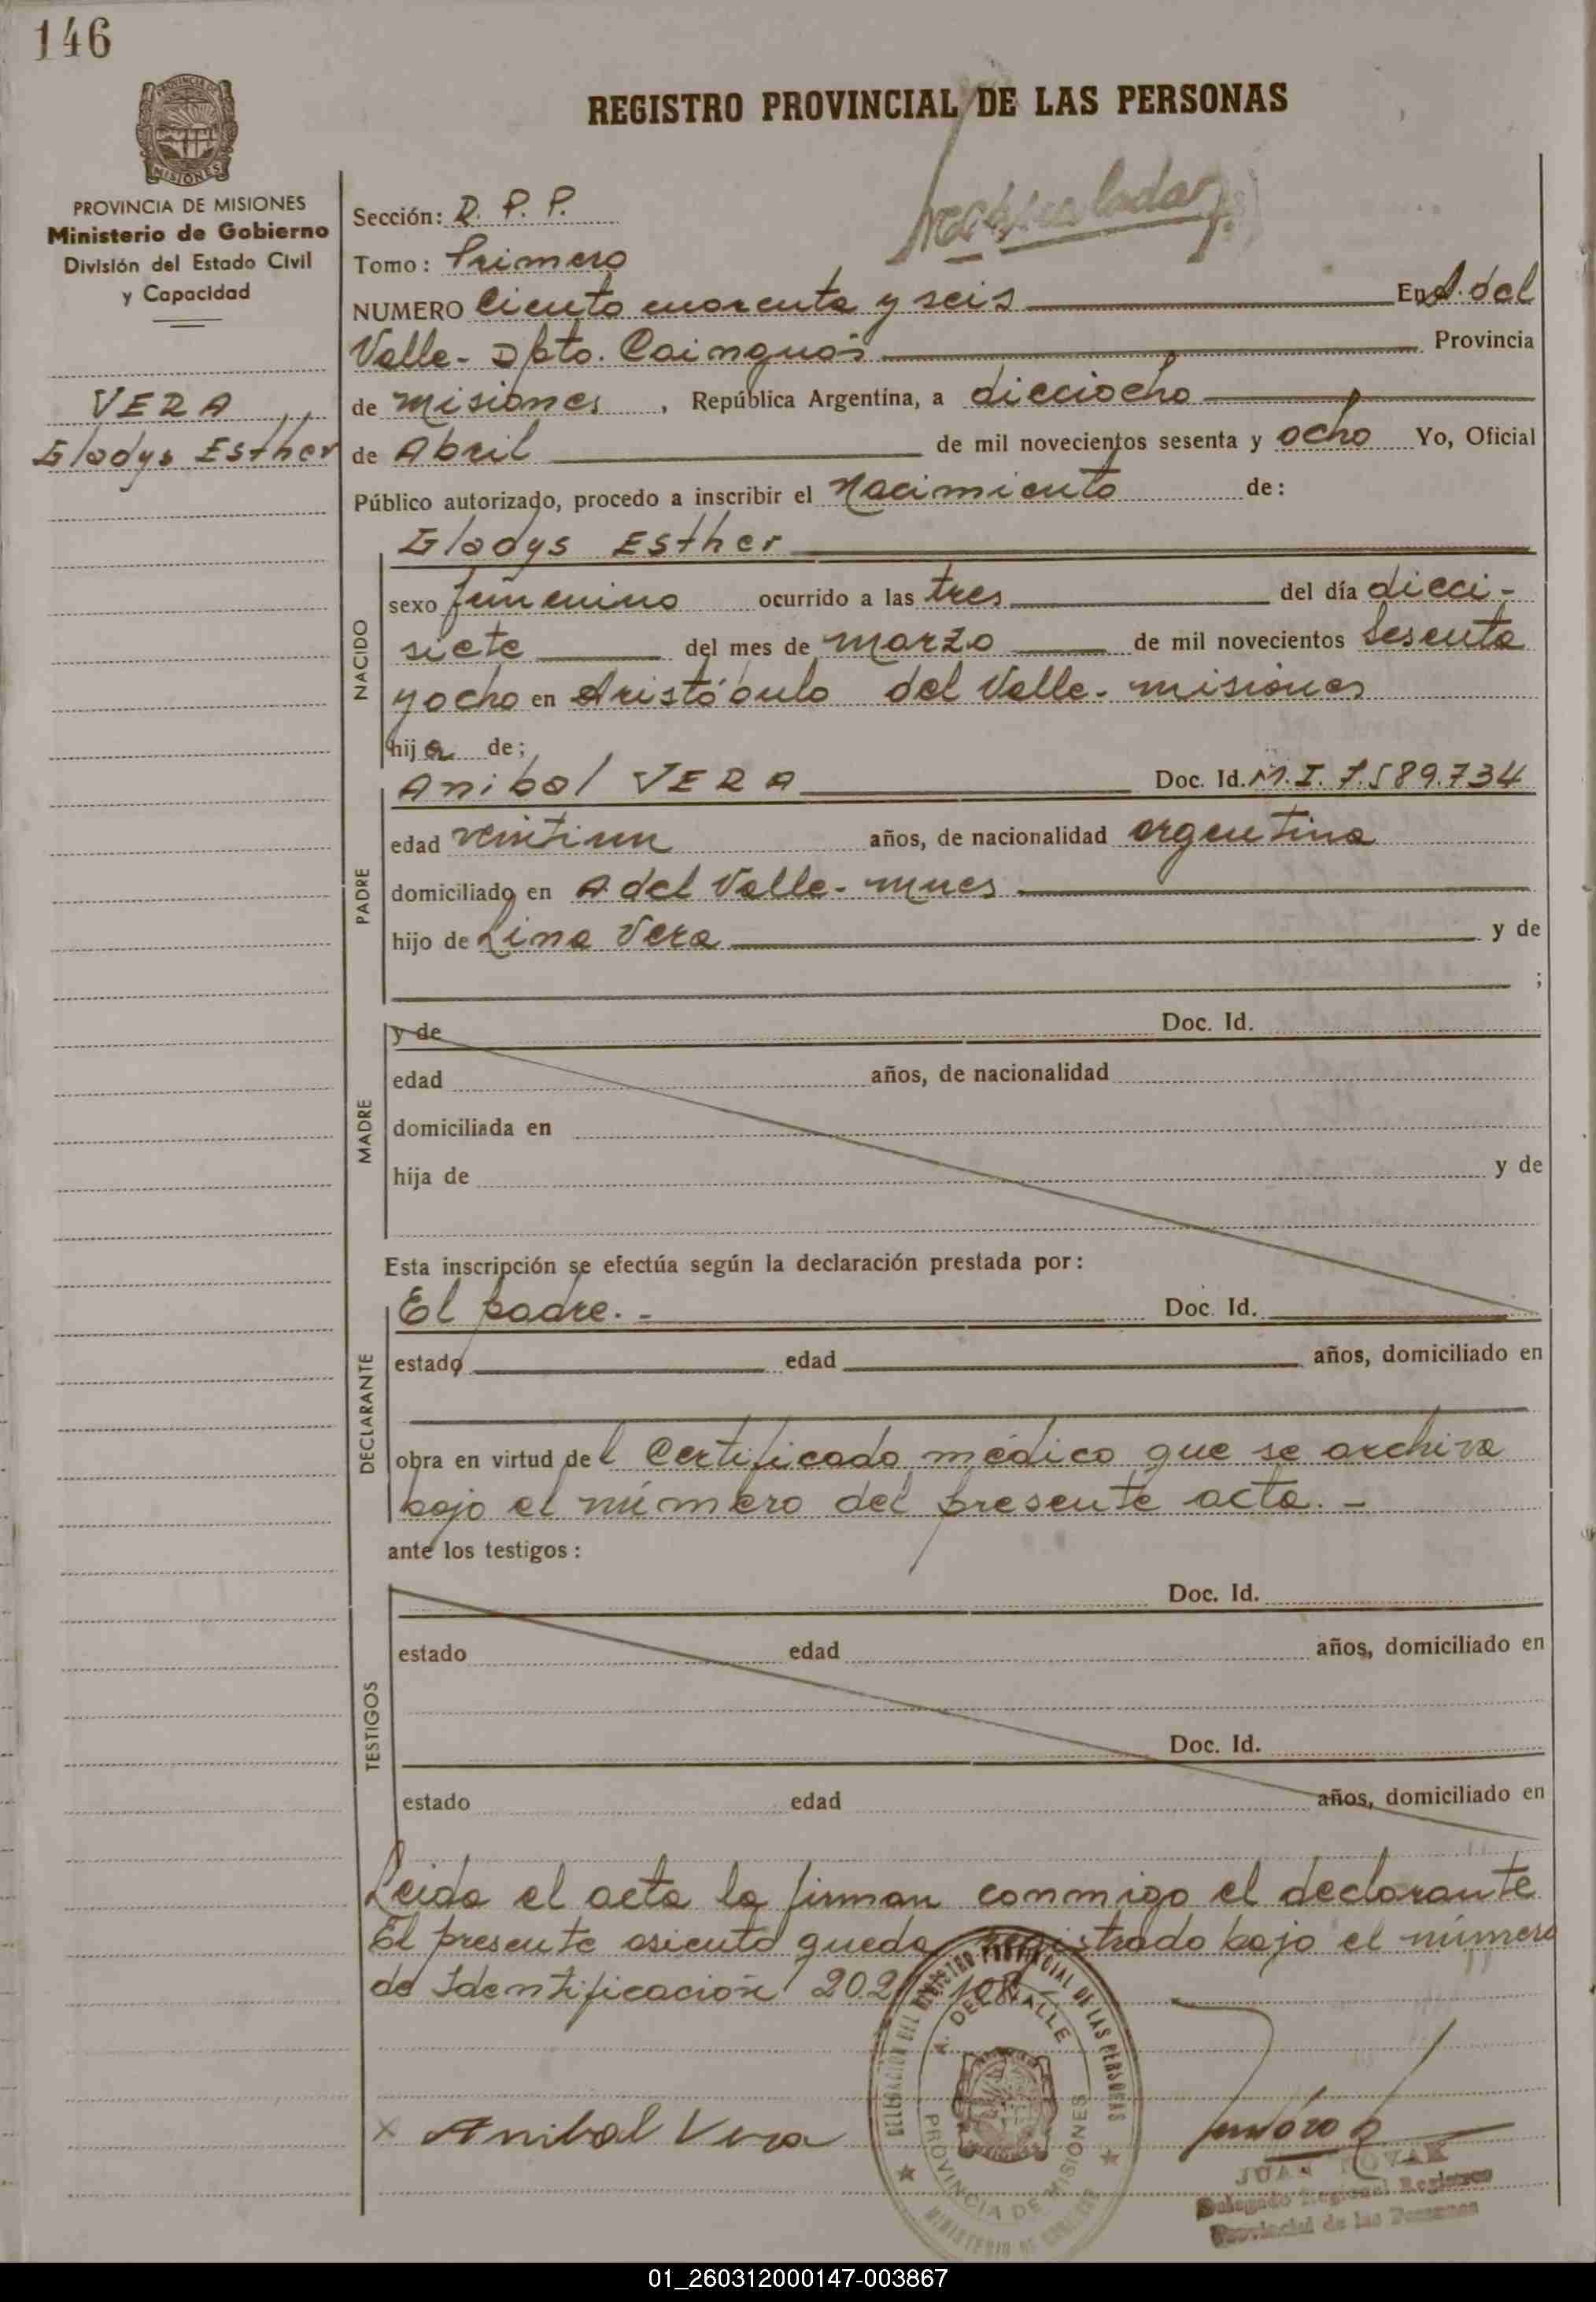 146
REGISTRO PROVINCIAL DE LAS PERSONAS
PROVINCIA DE MISIONES
Ministerio de Gobierno
División del Estado Civil
y Capacidad
VERA
Gladys Esther
Sección: R. P. P.
Tomo: Primero
NUMERO Ciento cuarenta y seis En A. del
Valle - Dpto. Cainguás Provincia
de Misiones, República Argentina, a dieciocho
de Abril de mil novecientos sesenta y ocho Yo, Oficial
Público autorizado, procedo a inscribir el Nacimiento de:
NACIDO
Gladys Esther
sexo femenino ocurrido a las tres del día dieci-
siete del mes de marzo de mil novecientos sesenta
y ocho en Aristóbulo del Valle - misiones
hija de;
PADRE
Anibal VERA Doc. Id. M.I. 7.589.734
edad veintiun años, de nacionalidad argentina
domiciliado en A del Valle - Mnes
hijo de Lina Vera y de
;
MADRE
y de Doc. Id.
edad años, de nacionalidad
domiciliada en
hija de y de
Esta inscripción se efectúa según la declaración prestada por:
DECLARANTE
El padre. - Doc. Id.
estado edad años, domiciliado en
obra en virtud del Certificado médico que se archiva
bajo el número del presente acta. -
ante los testigos:
TESTIGOS
Doc. Id.
estado edad años, domiciliado en
Doc. Id.
estado edad años, domiciliado en
Leida el acta la firman conmigo el declarante
El presente asiento queda registrado bajo el número
de Identificación 202
DELEGACION DEL REGISTRO PROVINCIAL DE LAS PERSONAS
A. DEL VALLE
PROVINCIA DE MISIONES
MINISTERIO DE GOBIERNO
x Anibal Vera
JUAN NOVAK
Delegado Regional Registro
Provincial de las Personas
01_260312000147-003867